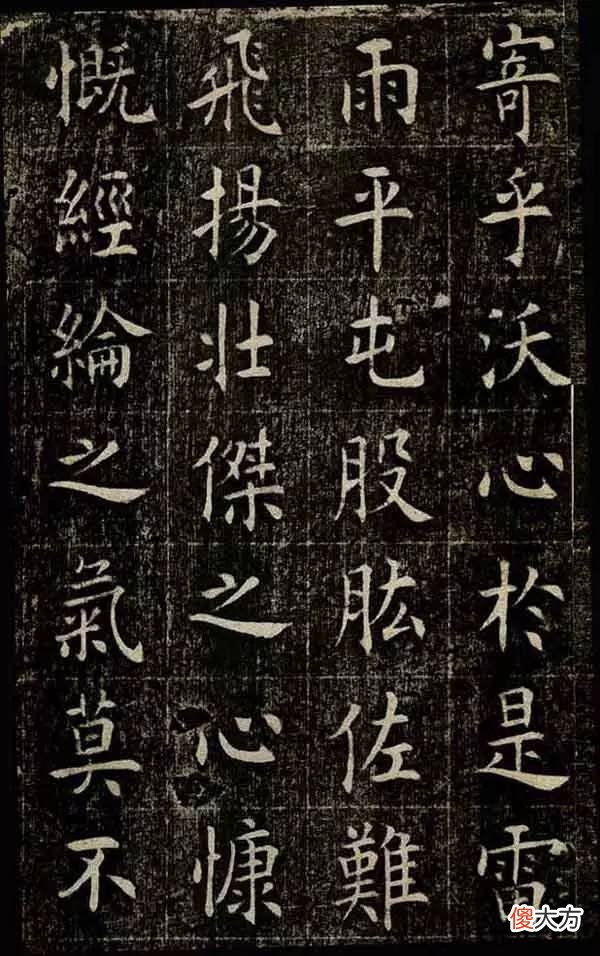 寄乎沃心於是雷
雨平屯股肱佐難
飛揚壯傑之心慷
慨經綸之氣莫不
傻大方